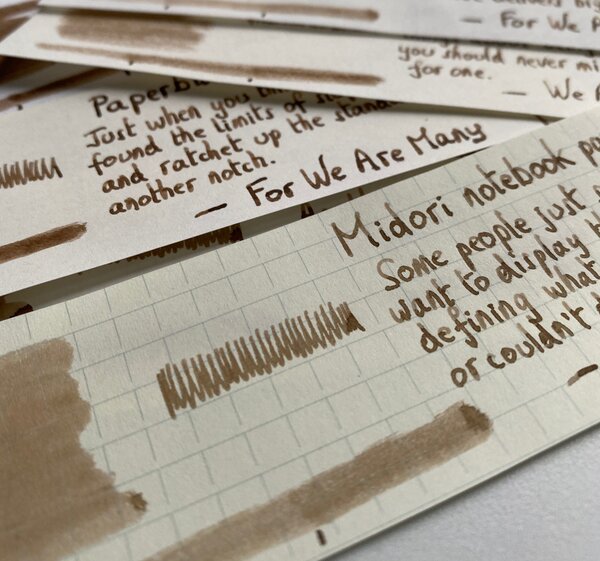 — For We
you should never
for one.
— We
Just when you
found the limits of
and ratchet up the
another notch.
— For We Are Many
Midori notebook
Some people just
want to display
defining what
or couldn't